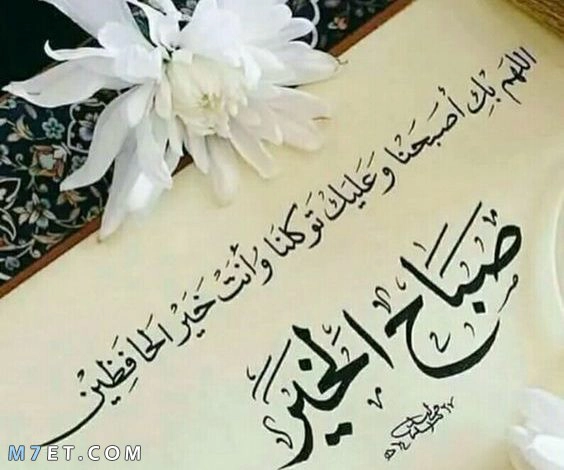 اللهم بك أصبحنا وعليك توكلنا وأنت خير الحافظين
صباح الخير
M7ET.COM